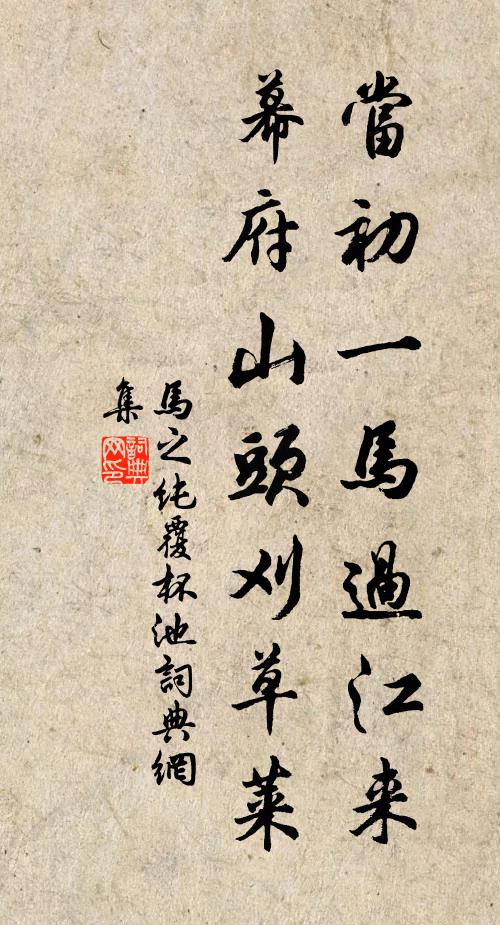 當初一馬過江来
幕府山頭刈草萊
馬之純覆杯池詞典網
集
詞典网印